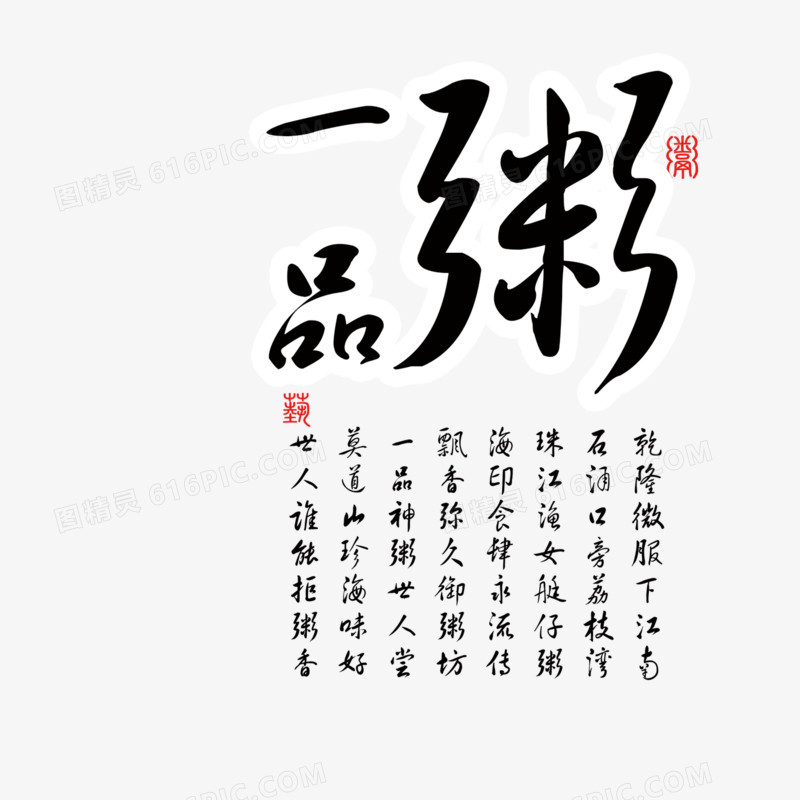 一品粥
乾隆微服下江南
石涌口旁荔枝湾
珠江渔女艇仔粥
海印食肆永流传
飘香弥久御粥坊
一品神粥世人尝
莫道山珍海味好
世人谁能拒粥香
图精灵 616PIC.COM